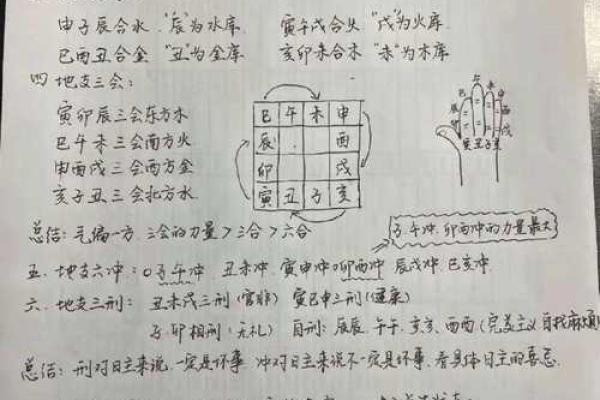 申子辰合水 "辰"为水库 寅午戌合火 "戌"为火库
巳酉丑合金 "丑"为金库 亥卯未合木 "未"为木库
四 地支三会:
寅卯辰三会东方木
巳午未三会南方火
申酉戌三会西方金
亥子丑三会北方水
巳 午 未 申
辰 酉
卯 戌
寅 丑 子 亥
午
巳 未 申
辰 酉
卯 戌
寅 丑 子 亥
总结: 气偏一方 三会的力量>三合>六合
子午冲 卯酉冲的力量最大
五. 地支六冲: 子午冲 丑未冲 寅申冲 卯酉冲 辰戌冲 巳亥冲
六. 地支三刑: 丑未戌三刑(官非) 寅巳申三刑(健康)
子卯相刑(无礼) 自刑: 辰辰. 午午. 亥亥. 酉酉(完美主义 自找麻烦)
总结: 刑对日主来说, 一定是坏事 冲对日主来说不一定是坏事, 看具体日主的喜忌.